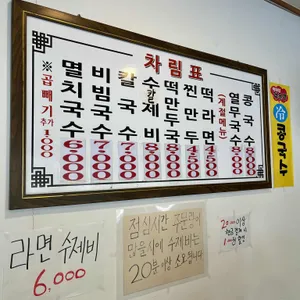 차림표
※곱빼기 추가 1000
멸치국수 6000
비빔국수 7000
칼국수 7000
수제비 칼제비 8000
떡만두국 8000
찐만두 4500
떡라면 4500
(계절메뉴)
열무국수 8000
콩국수 8000
冷 콩국수
라면 수제비
6,000
점심시간 주문량이
많을시에 수제비는
20분이상 소요됩니다